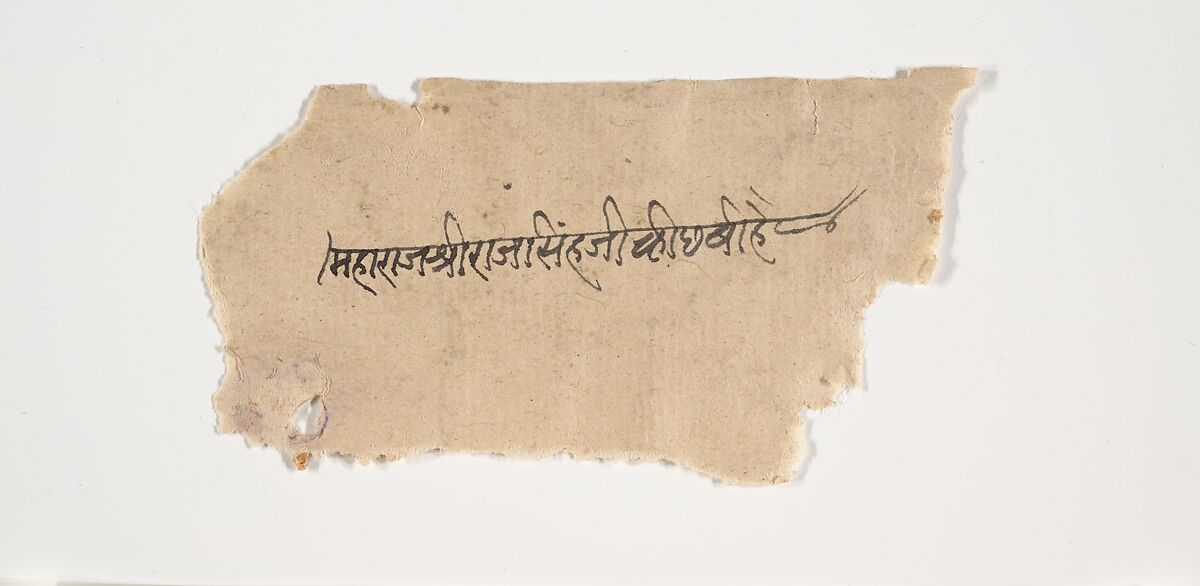 ।महाराजश्रीराजासिंहजीकीछबीहै